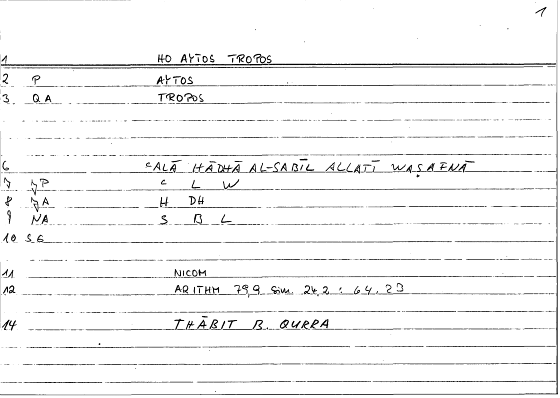 1
1 HO AYTOS TROPOS
2 P AYTOS
3 QA TROPOS
6 ʿALĀ HĀDHĀ AL-SABĪL ALLATĪ WAṢAFNĀ
7 P ʿ L W
8 A H DH
9 NA S B L
10 SG
11 NICOM
12 ARITHM 79,9 sim. 24,2 : 64.23
14 THĀBIT B. QURRA